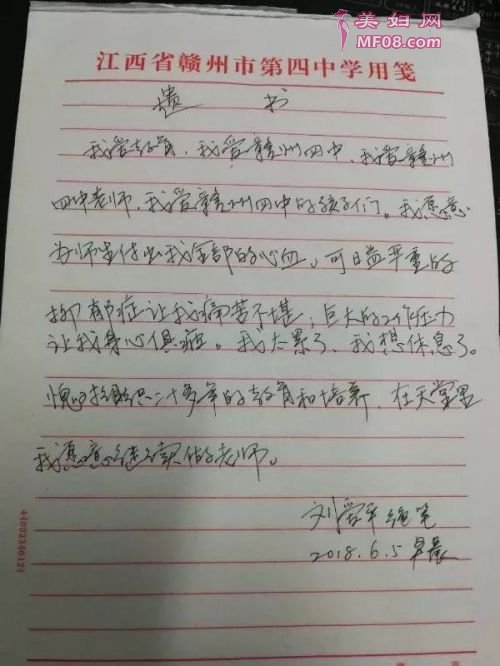 美妇网
MF08.com
江西省赣州市第四中学用笺
遗 书
我爱教育，我爱赣州四中，我爱赣州
四中老师，我爱赣州四中的孩子们。我愿意
为师生付出我全部的心血。可日益严重的
抑郁症让我痛苦不堪；巨大的工作压力
让我身心俱疲。我太累了，我想休息了。
愧对组织二十多年的教育和培养，在天堂里
我愿意继续做老师。
刘爱平绝笔
2018.6.5 早晨
44002346121